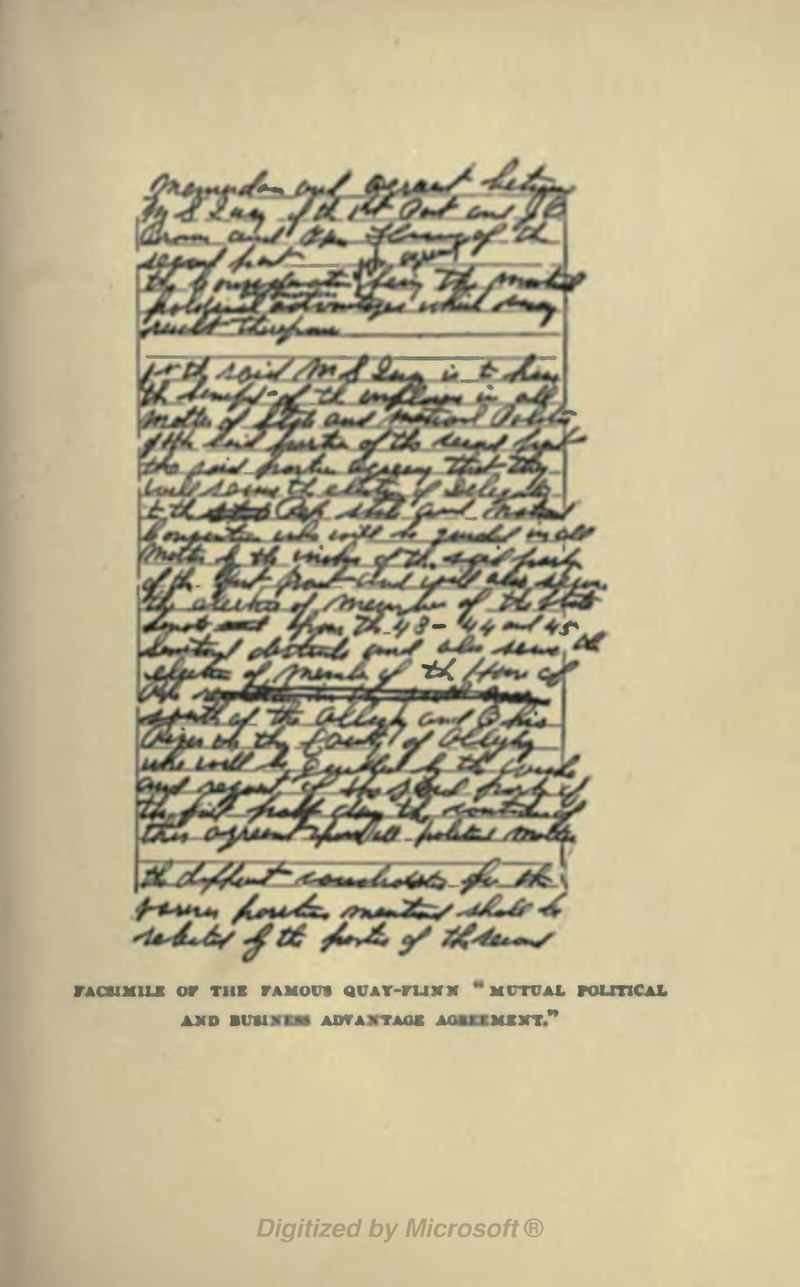 Memundam and agreant between
M S Quay of th 1st Part and J O
Brown and Wm Flinn of th
second part
the consideration being the mutual
political advantages which may
result therefrom
1st th said M S Quay is to have
th benefit of th influence in all
matters of State and national Politics
of th said parties of the second part
the said parties agreeing that they
will secure th election of Delegates
to th State and National
Convention who will be guided in all
matters by th wishes of th said party
of th first part and will also secure
the election of members of the State
Senate from Th 43 - 44 and 45
Senatorial districts and also secure th
election of members of th House of
south of the Allegh and Ohio
Rivers in the County of Allegheny
who will be guided by th wishes
and request of the said party of
the first part during the continuance of
this agreement upon all political matters
th different candidates for the
various positions mentioned shall be
selected by the parties of th second
FACSIMILE OF THE FAMOUS QUAY-FLINN "MUTUAL POLITICAL
AND BUSINESS ADVANTAGE AGREEMENT."
Digitized by Microsoft ®